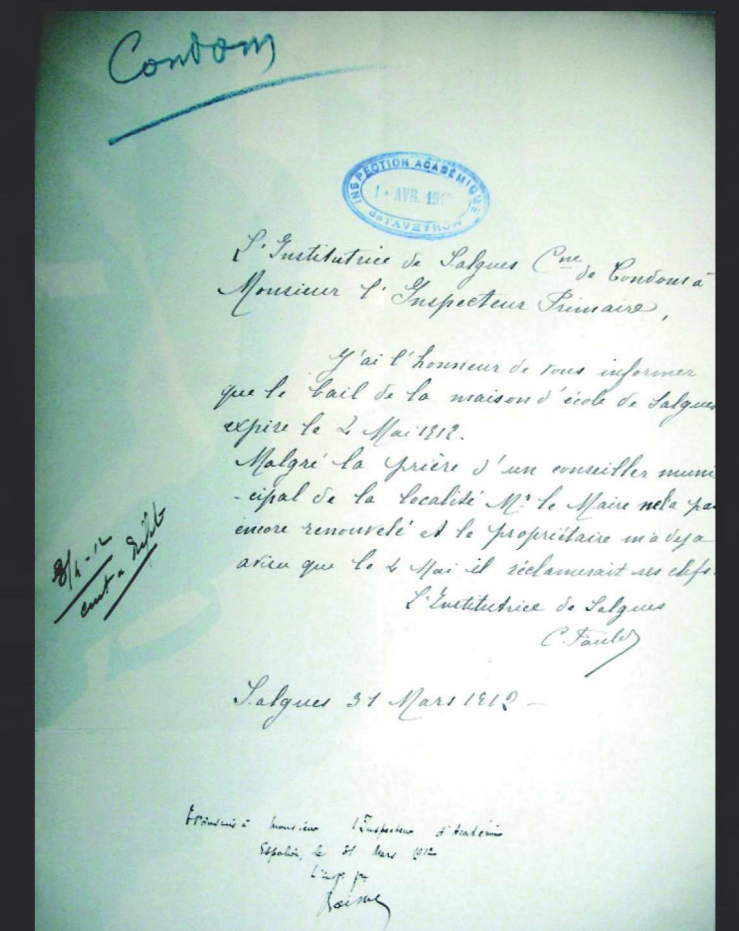 Condom
INSPECTION ACADÉMIQUE
1 - AVR. 1912
de l'AVEYRON
L'Institutrice de Salgues Cne de Condom à
Monsieur l'Inspecteur Primaire,
J'ai l'honneur de vous informer
que le bail de la maison d'école de Salgues
expire le 2 Mai 1912.
Malgré la prière d'un conseiller muni
-cipal de la localité Mr le Maire ne l'a pa
encore renouvelé et le propriétaire m'a deja
avisée que le 2 Mai il réclamerait ses clefs.
L'Institutrice de Salgues
Salgues 31 Mars 1912 -
8/4-12
Transmis à Monsieur l'Inspecteur d'Académie
Espalion, le 31 Mars 1912